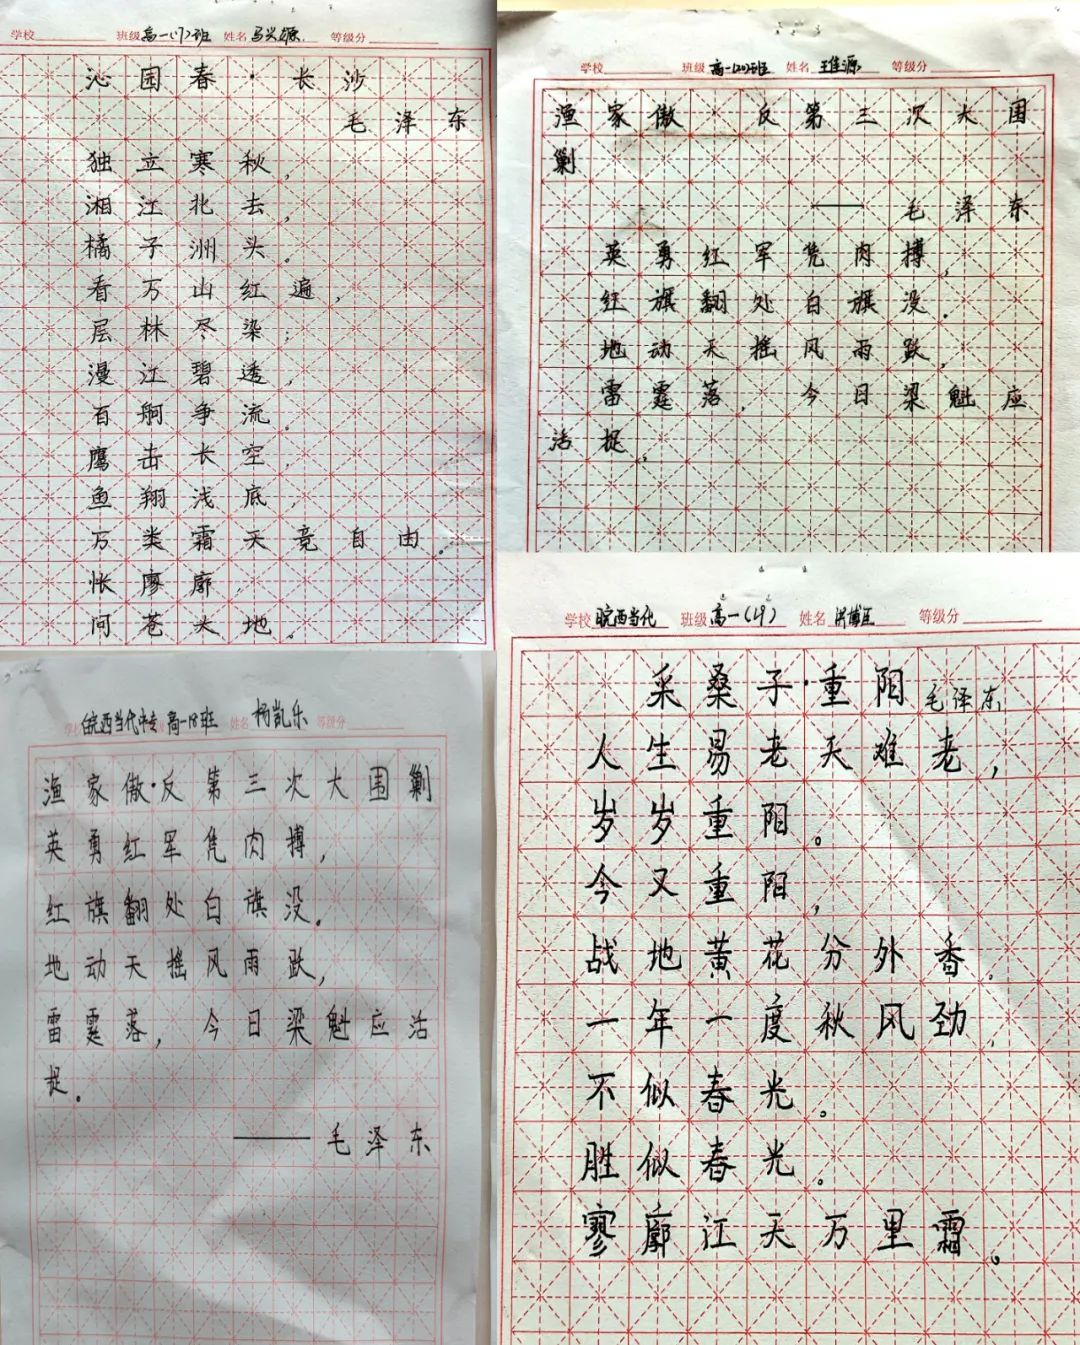 学校 班级 高一(17)班 姓名 马兴源 等级分
沁园春·长沙
毛泽东
独立寒秋，
湘江北去，
橘子洲头。
看万山红遍，
层林尽染；
漫江碧透，
百舸争流。
鹰击长空，
鱼翔浅底，
万类霜天竞自由。
怅廖廓，
问苍大地。
学校 班级 高一(20)班 姓名 王佳源 等级分
渔家傲 反第三次大围
剿
——毛泽东
英勇红军凭肉搏，
红旗翻处白旗没。
地动天摇风雨跃，
雷霆落，今日梁魁应
活捉。
学校 皖西当代中专 高一18班 姓名 杨凯乐 等级分
渔家傲·反第三次大围剿
英勇红军凭肉搏，
红旗翻处白旗没。
地动天摇风雨跃，
雷霆落，今日梁魁应活
捉。
——毛泽东
学校 皖西当代 班级 高一(19) 姓名 洪博 等级分
采桑子·重阳 毛泽东
人生易老天难老，
岁岁重阳。
今又重阳，
战地黄花分外香。
一年一度秋风劲，
不似春光。
胜似春光。
寥廓江天万里霜。